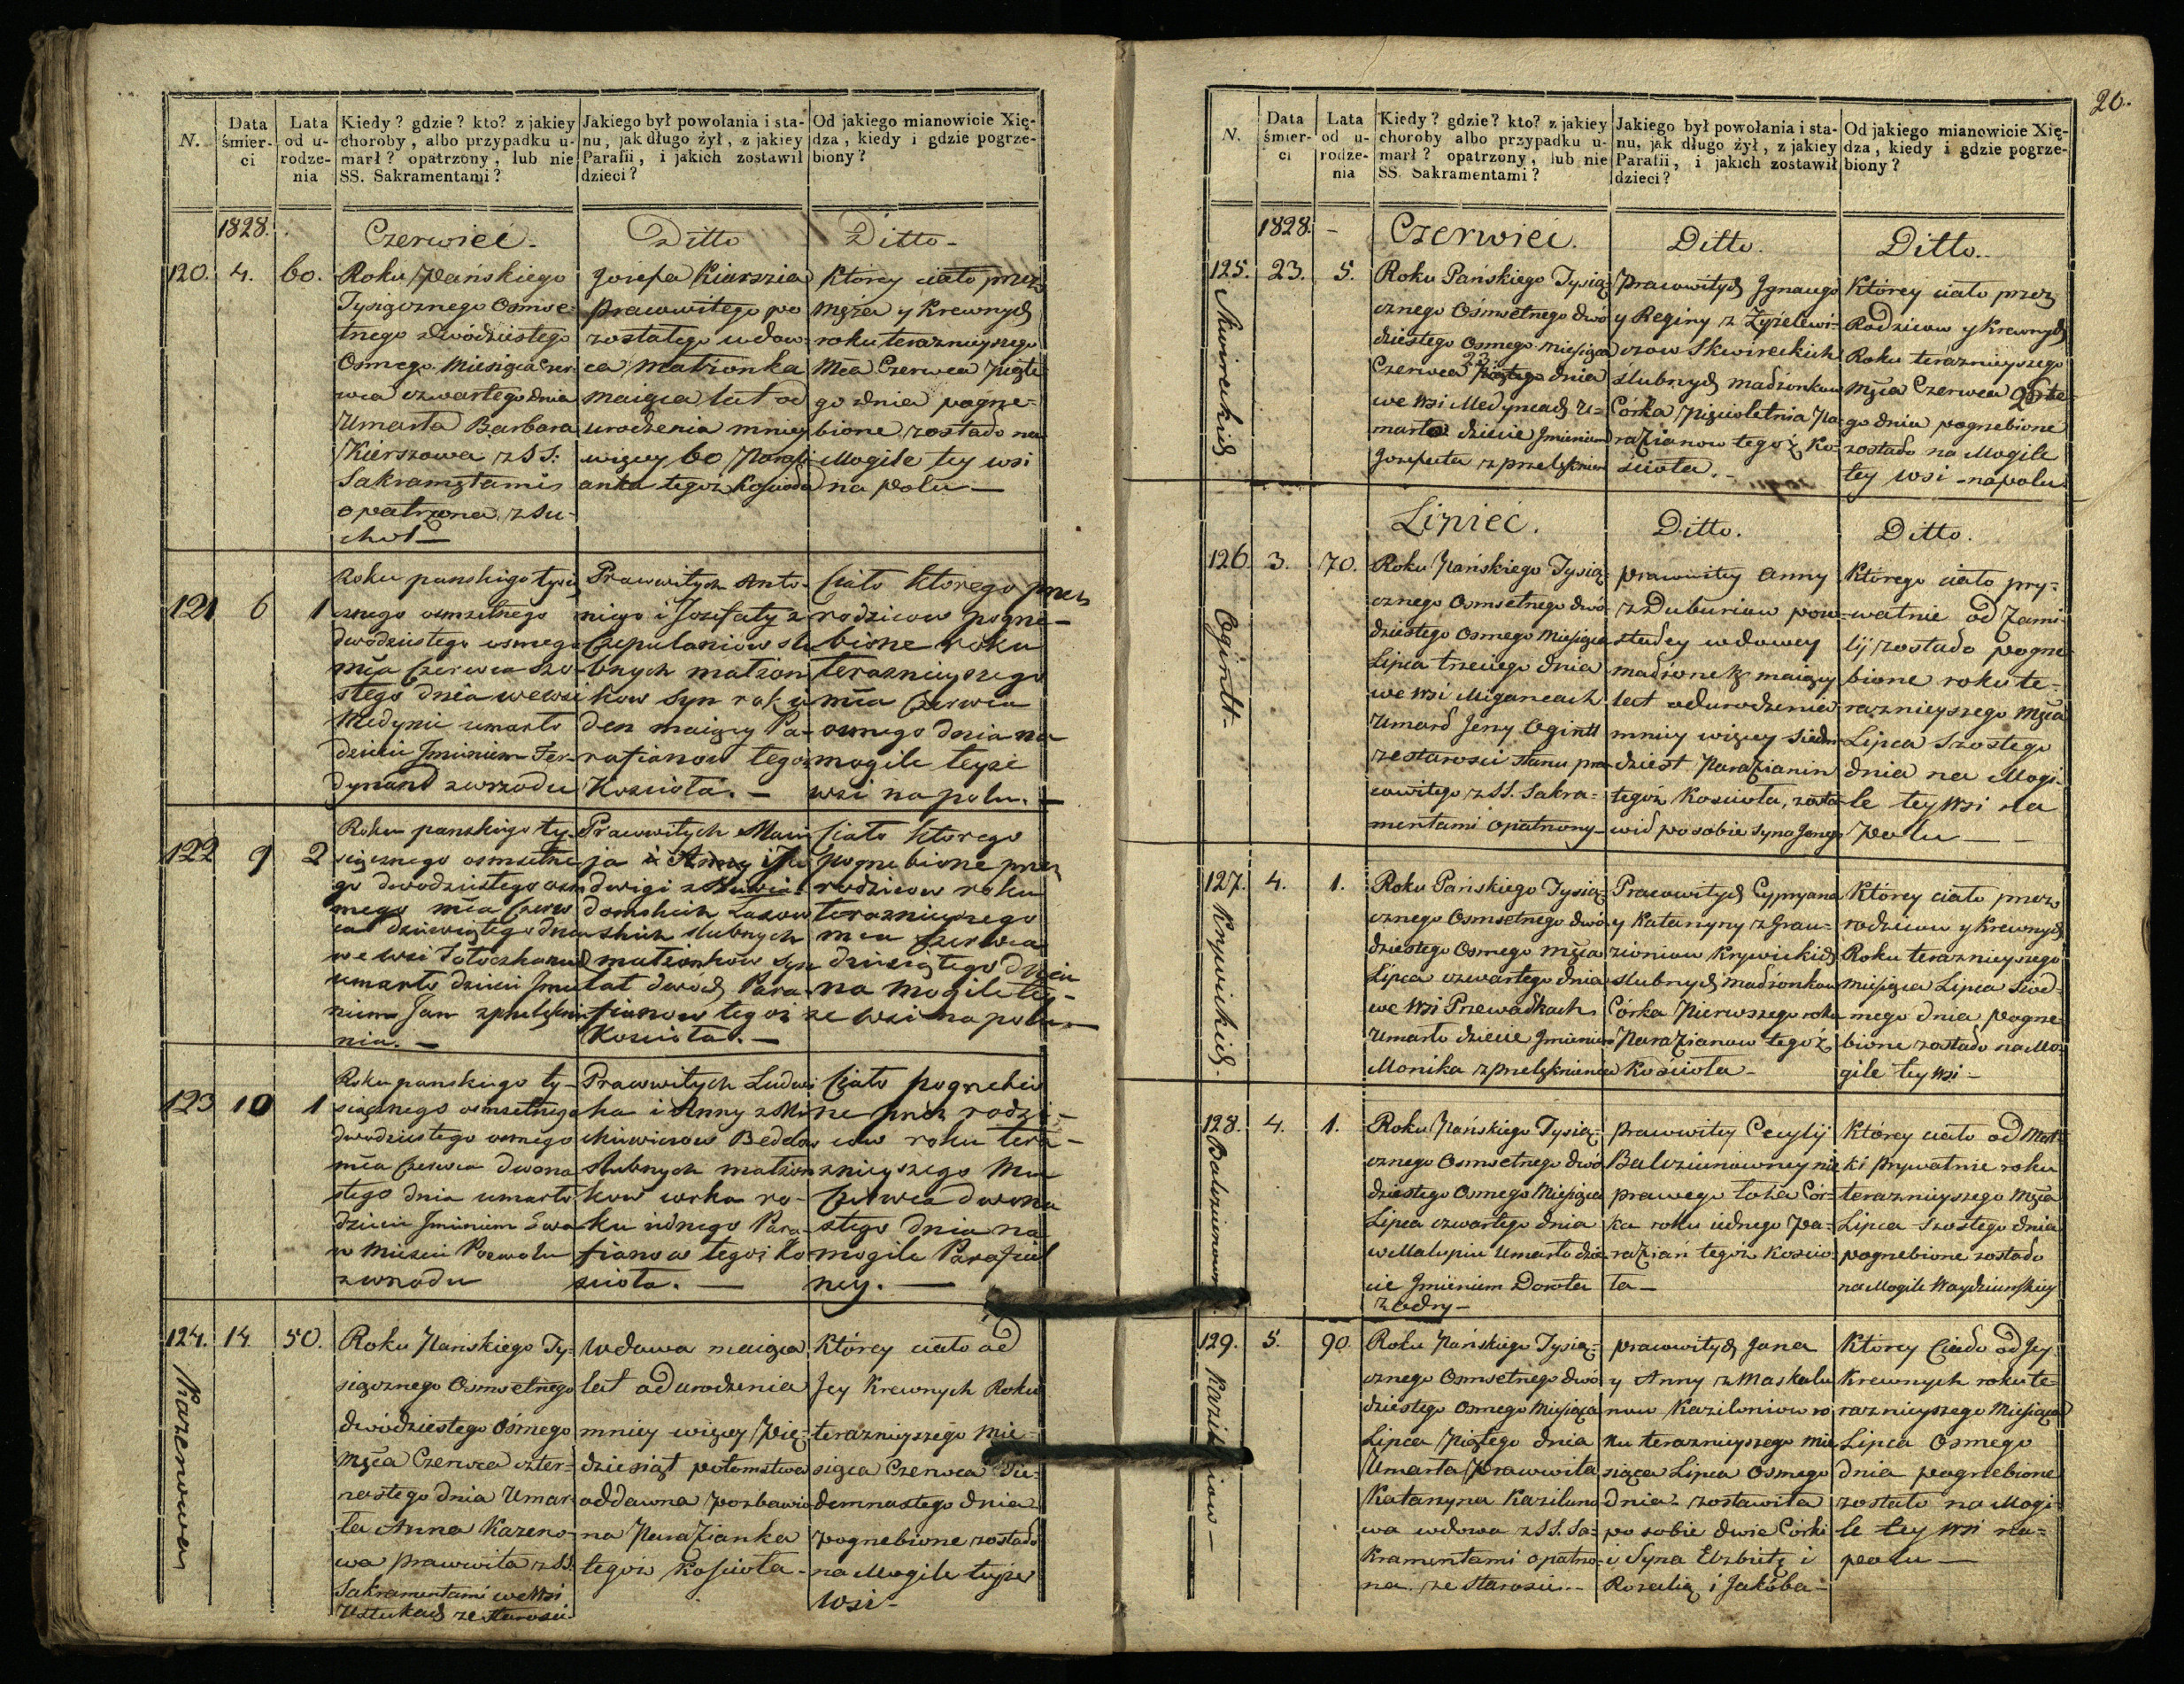 N.
Data śmierci
Lata od urodzenia
Kiedy? gdzie? kto? z jakiey
choroby, albo przypadku u-
marł? opatrzony, lub nie
SS. Sakramentami?
Jakiego był powołania i sta-
nu, jak długo żył, z jakiey
Parafii, i jakich zostawił
dzieci?
Od jakiego mianowicie Xię-
dza, kiedy i gdzie pogrze-
biony?
1828.
Czerwiec.
Ditto
Ditto
120. 4. 60.
Roku Pańskiego
Tysiącznego Osmse-
tnego dwódziestego
Osmego Miesiąca Czer
wca czwartego dnia
Umarła Barbara
Kierszowa z SS:
Sakramętami
opatrzona z su-
chot
Jozefa Kiarszia
prawowitego po
zostałego wdow-
ca małżonka
maiąca lat od
urodzenia mniey
więcey 60 Parafi
anka tegoż Kościoła
Którey ciało przez
Męża y Krewnych
roku teraznieyszego
Mca Czerwca piąte
go dnia pogrze-
bione zostało na
Mogile tey wsi
na polu
121 6 1
Roku panskiego tysią
cznego osmsetnego
dwodziestego osmego
mca Czerwca szo
stego dnia we wsi
Medynie umarło
dziecie Jmieniem Fer-
dynand z wrzodu
Prawowitych Anto-
niego i Jozefaty z
Czepulaniow slu
bnych małżon
kow Syn rok ie
den maiący Pa-
rafianow tegoż
Kosciola.
Ciało ktorego przez
rodzicow pogrze-
bione roku
teraznieyszego
mca Czerwca
osmego dnia na
mogile teyże
wsi na polu.
122 9 2
Roku panskiego ty-
siącznego osmsetne
go dwodziestego os
mego mca Czerw
ca dziewiątego dnia
we wsi
umarło dziecie Jmie
niem Jan z przelęknie
nia.
Prawowitych Maci
ja i Anny i Ja
dwigi z
domskich
skich slubnych
małżonkow syn
lat dwóch Para-
fianow tegoż
Kosciola.
Ciało ktorego
pogrzebione przez
rodzicow roku
teraznieyszego
mca Czerwca
dziesiątego dnia
na mogile tey-
że wsi na polu
123 10 1
Roku panskiego ty-
siącznego osmsetnego
dwodziestego osmego
mca Czerwca dwona
stego dnia umarło
dziecie Jmieniem Ewa
w Miescie
z wrzodu
Prawowitych Ludwi
ka i Anny z Mi
ckiewiczow
slubnych małżon
kow corka ro-
ku iednego Para-
fianow tegoż Ko
sciola.
Ciało pogrzebio
ne przez rodzi-
cow roku tera-
znieyszego Mca
Czerwca dwona
stego dnia na
mogile Parafial
ney.
124. 14. 50.
Kazenowa
Roku Pańskiego Ty-
siącznego Osmsetnego
dwódziestego Osmego
Męca Czerwca czter-
nastego dnia Umar
ła Anna Kazeno-
wa prawowita z SS.
Sakramentami we Wsi
ze starosci
Wdowa maiąca
lat od urodzenia
mniey więcey Pię-
dziesiąt potomstwa
oddawna pozbawio
na Parafianka
tegoż Kościoła
Którey ciało od
Jey Krewnych Roku
teraznieyszego Mie-
siąca Czerwca Sie-
demnastego dnia
pogrzebione zostało
na Mogile teyże
Wsi
20.
N.
Data śmierci
Lata od urodzenia
Kiedy? gdzie? kto? z jakiey
choroby albo przypadku u-
marł? opatrzony, lub nie
SS. Sakramentami?
Jakiego był powołania i sta-
nu, jak długo żył, z jakiey
Parafii, i jakich zostawił
dzieci?
Od jakiego mianowicie Xię-
dza, kiedy i gdzie pogrze-
biony?
1828.
Czerwiec.
Ditto.
Ditto.
125. 23. 5.
Skwireckich
Roku Pańskiego Tysią-
cznego Osmsetnego dwó
dziestego Osmego Miesiąca
23.
Czerwca dnia
we wsi Medyncach U-
marło dziecie Jmieniem
Jozefata z przelęknien
Prawowitych Jgnacego
y Reginy z Żyżelewi-
czow Skwireckich
slubnych małżonkow
Córka Pięcioletnia Pa-
rafianow tegoż Ko-
scioła.
Którey ciało przez
Rodzicow y Krewnych
Roku teraznieyszego
Męca Czerwca 25te
go dnia pogrzebione
zostało na Mogile
tey Wsi na polu
Lipiec.
Ditto.
Ditto.
126. 3. 70.
Ogintt
Roku Pańskiego Tysią
cznego Osmsetnego dwó
dziestego Osmego Miesiąca
Lipca trzeciego dnia
we Wsi Migancach
Umarł Jerzy Ogintt
ze starosci stanu pra-
wowitego z SS. Sakra-
mentami Opatrzony
prawowitey Anny
z Duburiow pozo-
stałey wdowey
małżonek maiący
lat od urodzenia
mniey więcey siedm
dziest Parafianin
tegoż Kosciola, zosta
wił po sobie Syna Jerzego
Którego ciało pry-
watnie od Fami-
lij zostało pogrze
bione roku te-
raznieyszego Męca
Lipca Szostego
dnia na Mogi-
le tey Wsi na
Polu
127. 4. 1.
Krywickich
Roku Pańskiego Tysią
cznego Osmsetnego dwó
dziestego Osmego Męca
Lipca czwartego dnia
we Wsi Przewadkach
Umarło dziecie Jmieniem
Monika z przelęknienia
Prawowitych Cypryana
y Katarzyny z Grau-
zioniow Krywickich
slubnych małżonkow
Córka Pierwszego roku
Parafianow tegoż
Kościoła
Którey ciało przez
rodzicow y Krewnych
Roku teraznieyszego
Miesiąca Lipca Siod-
mego dnia pogrze-
bione zostało na Mo-
gile tey Wsi
128. 4. 1.
Roku Pańskiego Tysią-
cznego Osmsetnego dwó
dziestego Osmego Miesiąca
Lipca czwartego dnia
w Malupiu Umarło dzie
cie Jmieniem Dorota
z odry
prawowitey Cecylij
Balcziunowney nie
prawego łoża Cór-
ka roku iednego Pa-
rafian tegoż Koscio-
ła
Którey ciało od Mat-
ki prywatnie roku
teraznieyszego Męca
Lipca Szostego dnia
pogrzebione zostało
na Mogile
129. 5. 90.
Roku Pańskiego Tysią-
cznego Osmsetnego dwó
dziestego Osmego Miesiąca
Lipca Piątego dnia
Umarła Prawowita
Katarzyna Kaziluno
wa wdowa z SS. Sa-
kramentami opatrzo-
na ze starosci
prawowitych Jana
y Anny z Maskalu
now Kaziloniow ro
ku teraznieyszego Mie
siąca Lipca Osmego
dnia zostawiła
po sobie dwie Córki
i Syna Elzbietę i
Rozalią i Jakóba
Którey Ciało od Jey
Krewnych roku te-
raznieyszego Miesiąca
Lipca Osmego
dnia pogrzebione
zostało na Mogi-
le tey Wsi na
polu